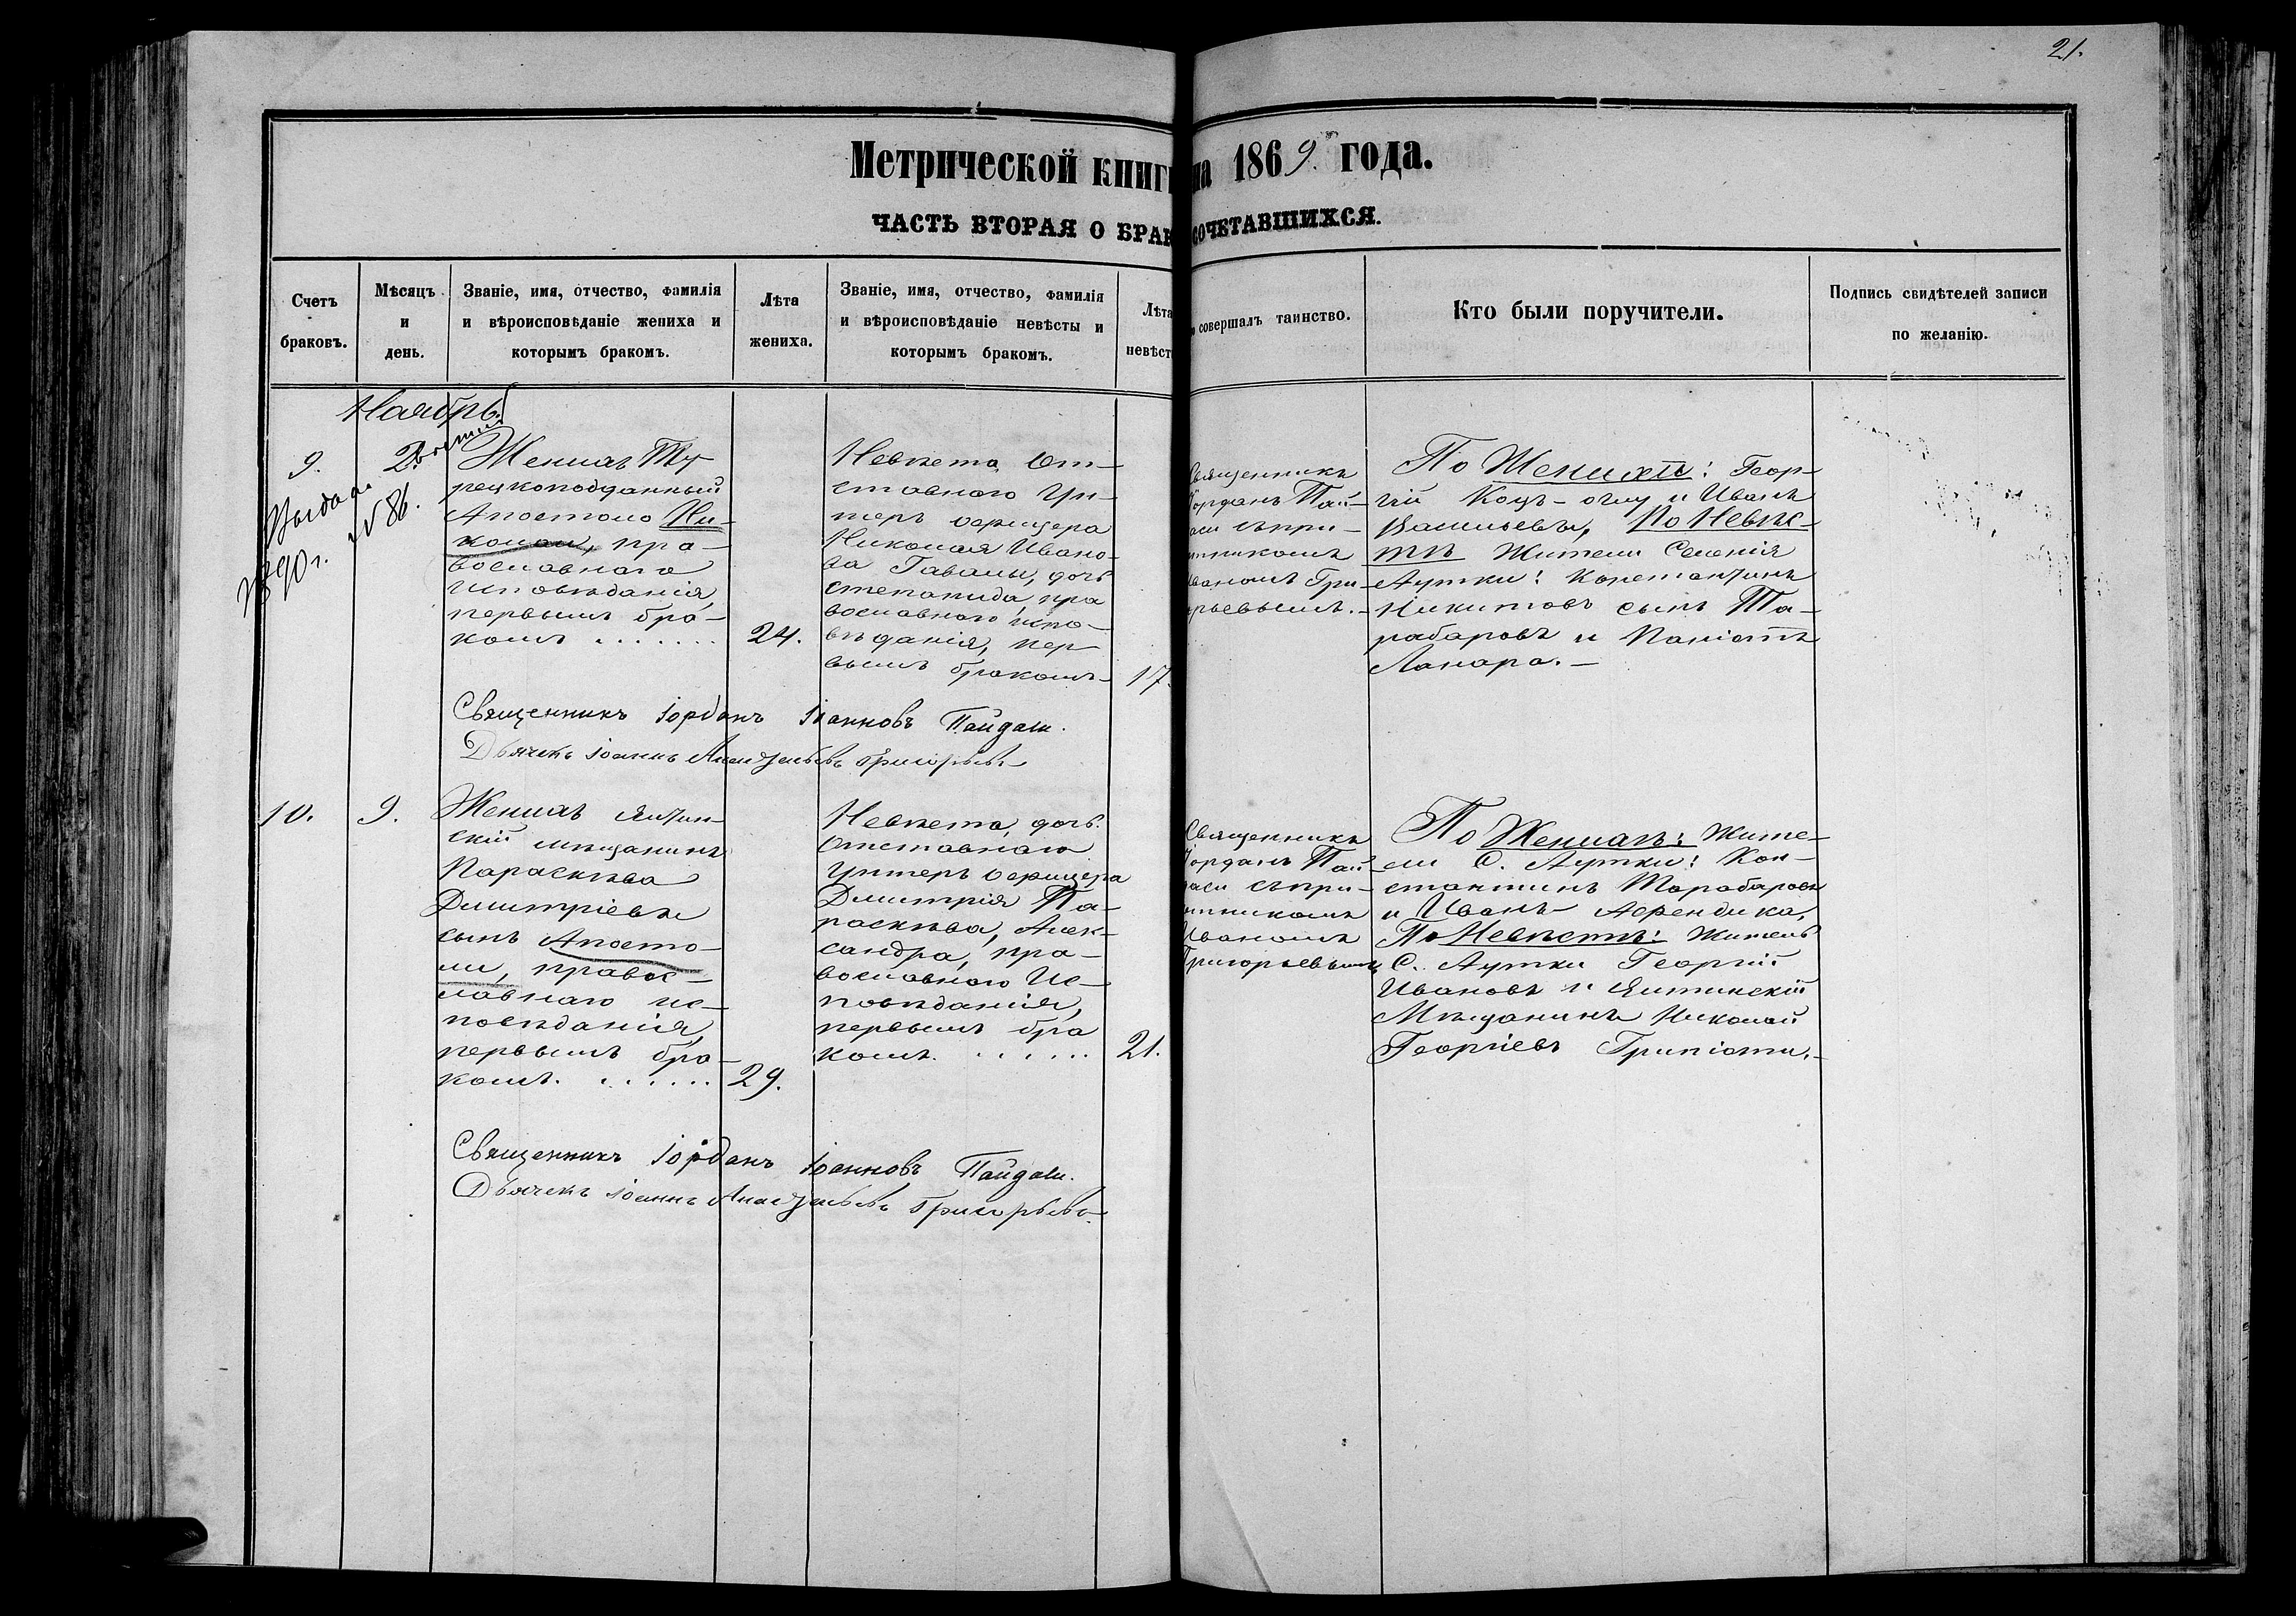 21.
Метрической книги на 1869. года.
ЧАСТЬ ВТОРАЯ О БРАК СОЧЕТАВШИХСЯ.
Счетъ
браковъ.
Мѣсяцъ
и
день.
Званіе, имя, отчество, фамилія
и вѣроисповѣданіе жениха и
которымъ бракомъ.
Лѣта
жениха.
Званіе, имя, отчество, фамилія
и вѣроисповѣданіе невѣсты и
которымъ бракомъ.
Лѣта
невѣст
совершалъ таинство.
Кто были поручители.
Подпись свидѣтелей записи
по желанію.
Ноябрь.
9.
2.
Выдана
№ 86.
90 г.
Женихъ Ту-
рецкоподданный
Апостолъ Ни-
колаи, пра-
вославнаго
исповѣданія,
первымъ бра-
комъ . . . . . . .
24.
Невѣста От-
ставного Ун-
теръ офицера
Николая Ивано-
ва Гавалы, дочь
Степанида, пра
вославного испо-
вѣданія, пер-
вымъ бракомъ-
17.
Священникъ
Іорданъ Пай-
даси съпри-
читникомъ
Иваномъ Гри-
орьевымъ.-
По Женихѣ: Геор-
гій Коцъ-оглу и Иванъ
Васильевъ, По Невѣс-
тѣ Жители Селенія
Аутки: Константинъ
Никитовъ сынъ Та-
рабаровъ и Паніотъ
Ланара.-
Священникъ Іорданъ Іоанновъ Пайдаси.
Дьячекъ Іоаннъ Григорьевъ
10.
9.
Женихъ Ялтин-
скій мѣщанинъ
Параскѣва
Димитріевъ
сынъ Апосто-
ли, правос-
лавнаго ис-
повѣданія,
первымъ бра-
комъ. . . . . . .
29.
Невѣста, дочь
Отставнаго
Унтеръ офицера
Димитрія Па-
раскѣва, Алек-
сандра, пра-
вославнаго Ис-
повѣданія,
первымъ бра
комъ. . . . . . .
21.
Священникъ
Іорданъ Пай
даси съпри-
читникомъ
Иваномъ
Григорьевымъ
По Женихѣ: Жите-
ли С. Аутки: Кон-
стантинъ Тарабаровъ
и Иванъ Афендика,
По Невѣстѣ: Житель
С. Аутки Георгій
Ивановъ и Ялтинскій
Мѣщанинъ Николай
Георгіевъ Трипіоти.-
Священникъ Іорданъ Іоанновъ Пайдаси.
Дьячекъ Іоаннъ Григорьевъ